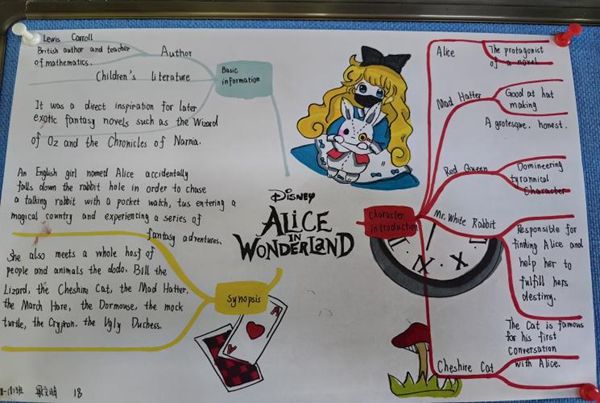 Lewis Carroll
British author and teacher
of mathematics.
Author
Children's Literature
Basic
information
It was a direct inspiration for later
exotic fantasy novels such as the Wizard
of Oz and the Chronicles of Narnia.
An English girl named Alice accidentally
falls down the rabbit hole in order to chase
a talking rabbit with a pocket watch, tus entering a
magical country and experiencing a series of
fantasy adventures.
She also meets a whole host of
people and animals the dodo. Bill the
Lizard, the Cheshire Cat, the Mad Hatter,
the March Hare, the Dormouse, the mock
turtle, the Gryphon. the Ugly Duchess.
Synopsis
A
DISNEY
ALICE
IN
WONDERLAND
Character
introduction
Alice
The protagonist
of a novel
Mad Hatter
Good at hat
making
A grotesque, honest.
Red Queen
Domineering
tyrannical
Character
Mr. White Rabbit
Responsible for
finding Alice and
help her to
fulfill hers
desting.
Cheshire Cat
The Cat is famous
for his first
conversation
with Alice.
18